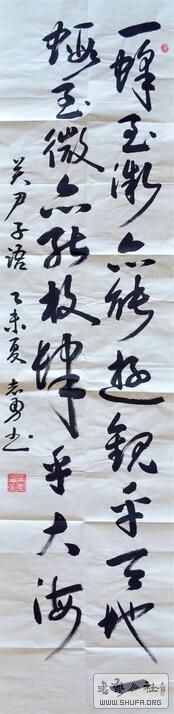 一蜂至微亦能遊觀乎天地一
蝦至微亦能放肆乎大海
关尹子语 乙未夏 志勇书
WWW.SHUFA.ORG